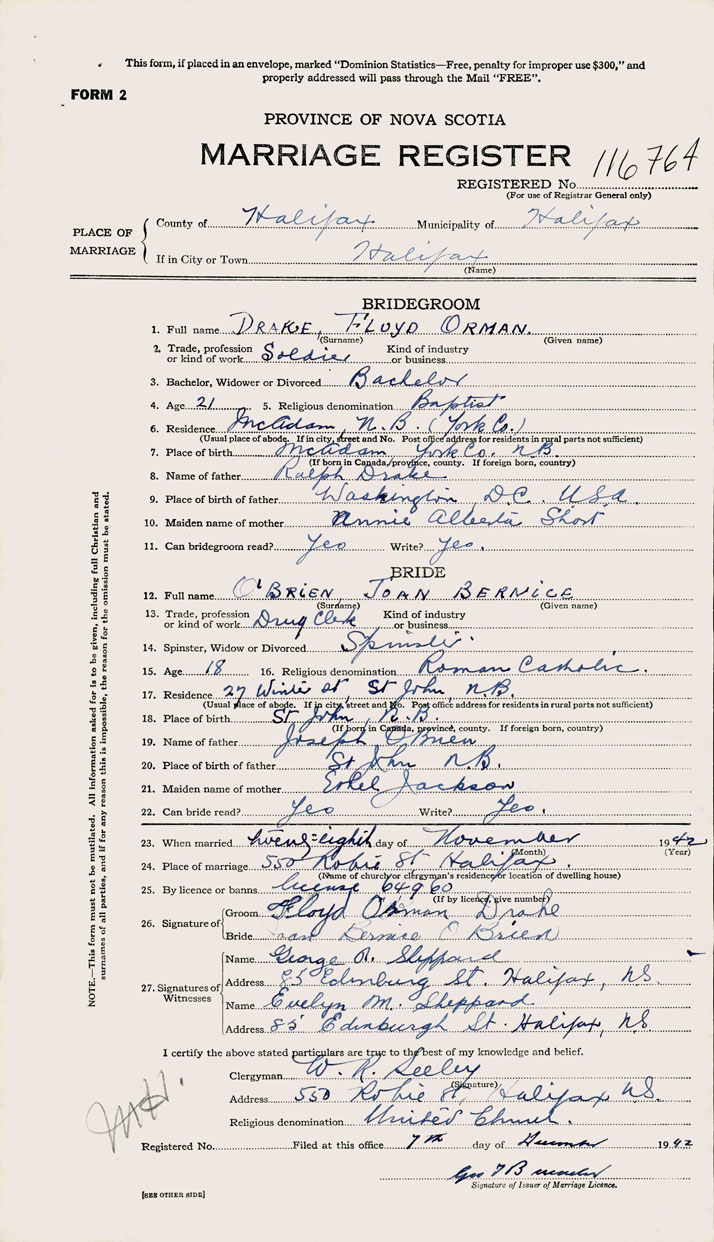 This form, if placed in an envelope, marked "Dominion Statistics—Free, penalty for improper use $300," and
properly addressed will pass through the Mail "FREE".
FORM 2
PROVINCE OF NOVA SCOTIA
MARRIAGE REGISTER
116764
REGISTERED No.
(For use of Registrar General only)
PLACE OF MARRIAGE
County of Halifax Municipality of Halifax
If in City or Town Halifax
(Name)
BRIDEGROOM
1. Full name DRAKE, FLOYD ORMAN.
(Surname) (Given name)
2. Trade, profession or kind of work Soldier Kind of industry or business
3. Bachelor, Widower or Divorced Bachelor
4. Age 21 5. Religious denomination Baptist
6. Residence McAdam, N.B. (York Co.)
(Usual place of abode. If in city, street and No. Post office address for residents in rural parts not sufficient)
7. Place of birth McAdam, York Co. N.B.
(If born in Canada, province, county. If foreign born, country)
8. Name of father Ralph Drake
9. Place of birth of father Washington D.C. U.S.A.
10. Maiden name of mother Annie Alberta Short
11. Can bridegroom read? Yes Write? Yes.
BRIDE
12. Full name O'BRIEN, JOAN BERNICE
(Surname) (Given name)
13. Trade, profession or kind of work Drug Clerk Kind of industry or business
14. Spinster, Widow or Divorced Spinster.
15. Age 18 16. Religious denomination Roman Catholic.
17. Residence 27 Winter St, St John, N.B.
(Usual place of abode. If in city, street and No. Post office address for residents in rural parts not sufficient)
18. Place of birth St John, N.B.
(If born in Canada, province, county. If foreign born, country)
19. Name of father Joseph O'Brien
20. Place of birth of father St John N.B.
21. Maiden name of mother Ethel Jackson
22. Can bride read? Yes Write? Yes.
23. When married twenty-eighth day of November 1942
(Month) (Year)
24. Place of marriage 550 Robie St Halifax.
(Name of church or clergyman's residence, or location of dwelling house)
25. By licence or banns license 64960
(If by licence, give number)
26. Signature of
Groom Floyd Orman Drake
Bride Joan Bernice O'Brien
27. Signatures of Witnesses
Name George R. Sheppard
Address 85 Edinburg St. Halifax, NS.
Name Evelyn M. Sheppard
Address 85 Edinburgh St. Halifax, NS
I certify the above stated particulars are true to the best of my knowledge and belief.
Clergyman W. R. Seeley
(Signature)
Address 550 Robie St, Halifax N.S.
Religious denomination United Church.
Registered No. Filed at this office 7th day of December 1942
Signature of Issuer of Marriage Licence.
[SEE OTHER SIDE]
NOTE.—This form must not be mutilated. All information asked for is to be given, including full Christian and
surnames of all parties, and if for any reason this is impossible, the reason for the omission must be stated.